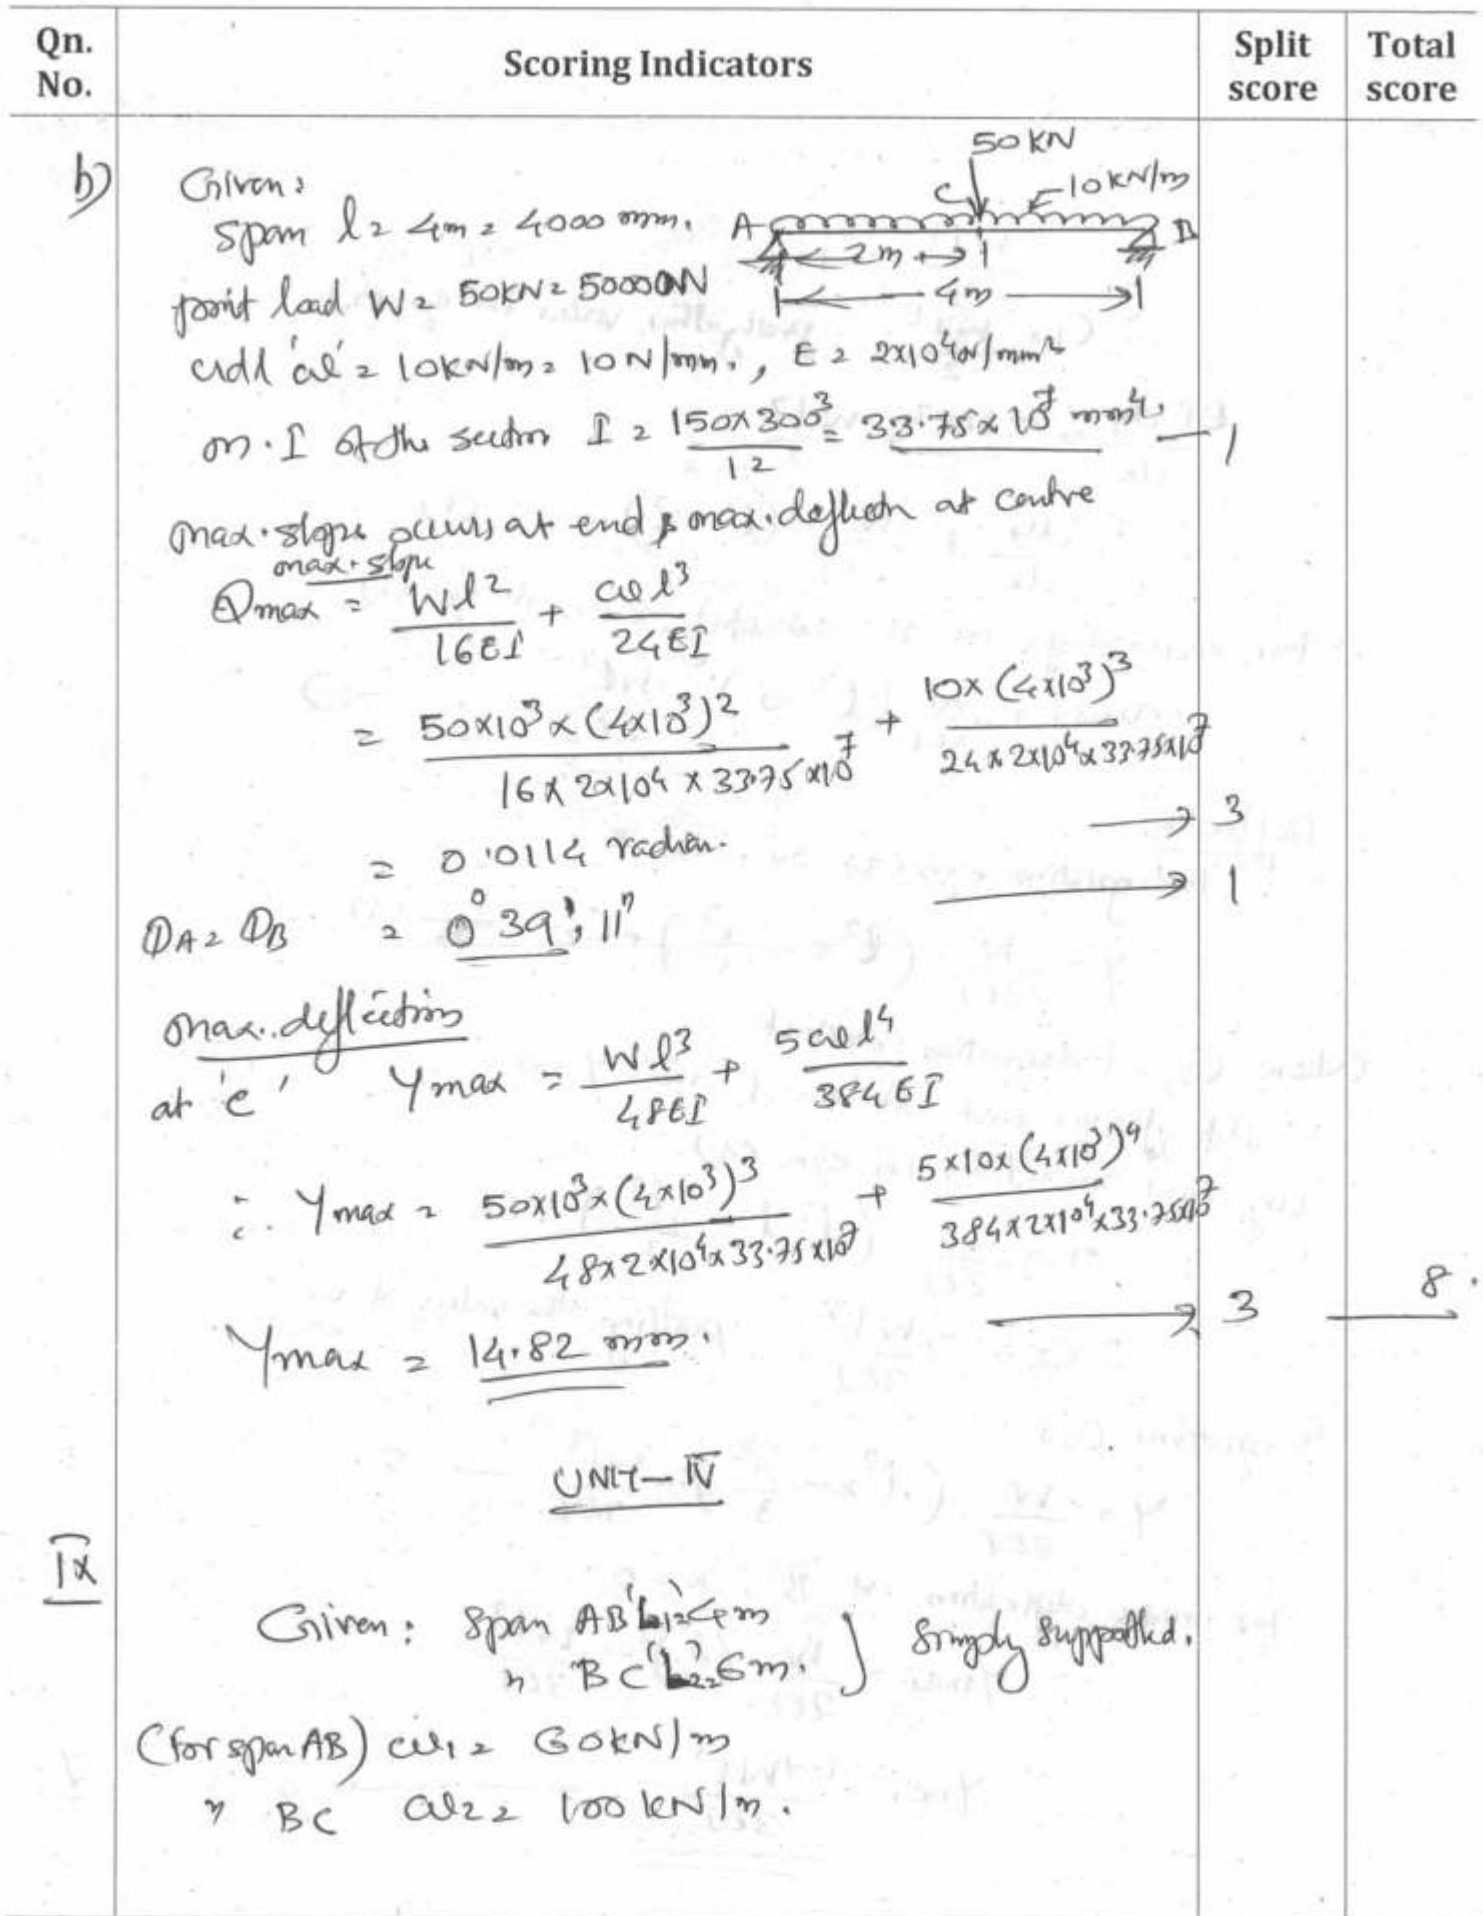 Qn. No. Scoring Indicators Split score Total score
b) Given:
50 KN
C 10 KN/m
A B
2m
4m
Span l = 4m = 4000 mm.
point load W = 50KN = 50000N
udl 'ω' = 10KN/m = 10 N/mm., E = 2x10⁴N/mm²
m.I of the section I = 150x300³/12 = 33.75x10⁷ mm⁴. — 1
max.slope occurs at end & max.deflectn at centre
max.slope
θmax = Wl²/16EI + ωl³/24EI
= 50x10³x(4x10³)²/16x2x10⁴x33.75x10⁷ + 10x(4x10³)³/24x2x10⁴x33.75x10⁷
→ 3
= 0.0114 radian.
→ 1
θA = θB = 0° 39', 11"
max.deflection
at 'c' Ymax = Wl³/48EI + 5ωl⁴/384EI
∴ Ymax = 50x10³x(4x10³)³/48x2x10⁴x33.75x10⁷ + 5x10x(4x10³)⁴/384x2x10⁴x33.75x10⁷
→ 3 8.
Ymax = 14.82 mm.
UNIT-IV
IX
Given: Span AB 'L1' = 4m
" BC 'L2' = 6m. } Simply Supported.
(for span AB) ω1 = 60KN/m
" BC ω2 = 100 KN/m.